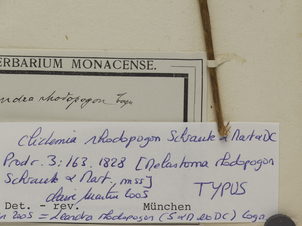 HERBARIUM MONACENSE.
andra rhodopogon Cogn
Clidemia rhodopogon Schrank & Mart ex DC
Prodr. 3: 163. 1828 [Melastoma rhodopogon
Schrank & Mart, mss]
TYPUS
Martin 2005
Det. - rev. München
in 2005 = Leandra rhodopogon (S & M ex DC) Cogn